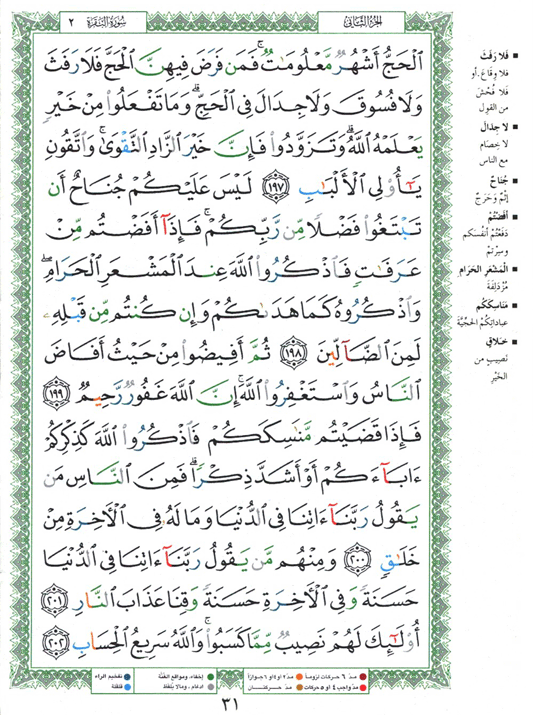 سُورَةُ البَقَرَة ٢
الجزء الثاني
ٱلْحَجُّ أَشْهُرٌ مَّعْلُومَٰتٌ ۚ فَمَن فَرَضَ فِيهِنَّ ٱلْحَجَّ فَلَا رَفَثَ
وَلَا فُسُوقَ وَلَا جِدَالَ فِى ٱلْحَجِّ ۗ وَمَا تَفْعَلُوا۟ مِنْ خَيْرٍ
يَعْلَمْهُ ٱللَّهُ ۗ وَتَزَوَّدُوا۟ فَإِنَّ خَيْرَ ٱلزَّادِ ٱلتَّقْوَىٰ ۚ وَٱتَّقُونِ
يَٰٓأُو۟لِى ٱلْأَلْبَٰبِ ١٩٧ لَيْسَ عَلَيْكُمْ جُنَاحٌ أَن
تَبْتَغُوا۟ فَضْلًا مِّن رَّبِّكُمْ ۚ فَإِذَآ أَفَضْتُم مِّنْ
عَرَفَٰتٍ فَٱذْكُرُوا۟ ٱللَّهَ عِندَ ٱلْمَشْعَرِ ٱلْحَرَامِ ۖ
وَٱذْكُرُوهُ كَمَا هَدَىٰكُمْ وَإِن كُنتُم مِّن قَبْلِهِۦ
لَمِنَ ٱلضَّآلِّينَ ١٩٨ ثُمَّ أَفِيضُوا۟ مِنْ حَيْثُ أَفَاضَ
ٱلنَّاسُ وَٱسْتَغْفِرُوا۟ ٱللَّهَ ۚ إِنَّ ٱللَّهَ غَفُورٌ رَّحِيمٌ ١٩٩
فَإِذَا قَضَيْتُم مَّنَٰسِكَكُمْ فَٱذْكُرُوا۟ ٱللَّهَ كَذِكْرِكُمْ
ءَابَآءَكُمْ أَوْ أَشَدَّ ذِكْرًا ۗ فَمِنَ ٱلنَّاسِ مَن
يَقُولُ رَبَّنَآ ءَاتِنَا فِى ٱلدُّنْيَا وَمَا لَهُۥ فِى ٱلْأَخِرَةِ مِنْ
خَلَٰقٍ ٢٠٠ وَمِنْهُم مَّن يَقُولُ رَبَّنَآ ءَاتِنَا فِى ٱلدُّنْيَا
حَسَنَةً وَفِى ٱلْأَخِرَةِ حَسَنَةً وَقِنَا عَذَابَ ٱلنَّارِ ٢٠١
أُو۟لَٰٓئِكَ لَهُمْ نَصِيبٌ مِّمَّا كَسَبُوا۟ ۚ وَٱللَّهُ سَرِيعُ ٱلْحِسَابِ ٢٠٢
فَلا رَفَثَ
فلا وِقاعَ، أو
فلا فُحْشَ
من القول
لا جِدالَ
لا خِصامَ
مع الناس
جُناحٌ
إثْمٌ وحَرَجٌ
أَفَضْتُمْ
دَفَعْتُمْ أنفسَكم
وسِرْتُمْ
الْمَشْعَرِ الحَرامِ
مُزْدَلِفَةَ
مَناسِكَكُمْ
عباداتِكُمُ الحَجِّيَّةَ
خَلاقٍ
نصيبٍ من
الخَيْرِ
مدّ ٦ حركات لزوماً
مدّ ٢ او ٤ او ٦ جوازاً
إخفاء، ومواقع الغُنَّة
تفخيم الراء
مدّ واجب ٤ او ٥ حركات
مدّ حركتــان
ادغام ، ومالا يُلفَظ
قلقلة
٣١